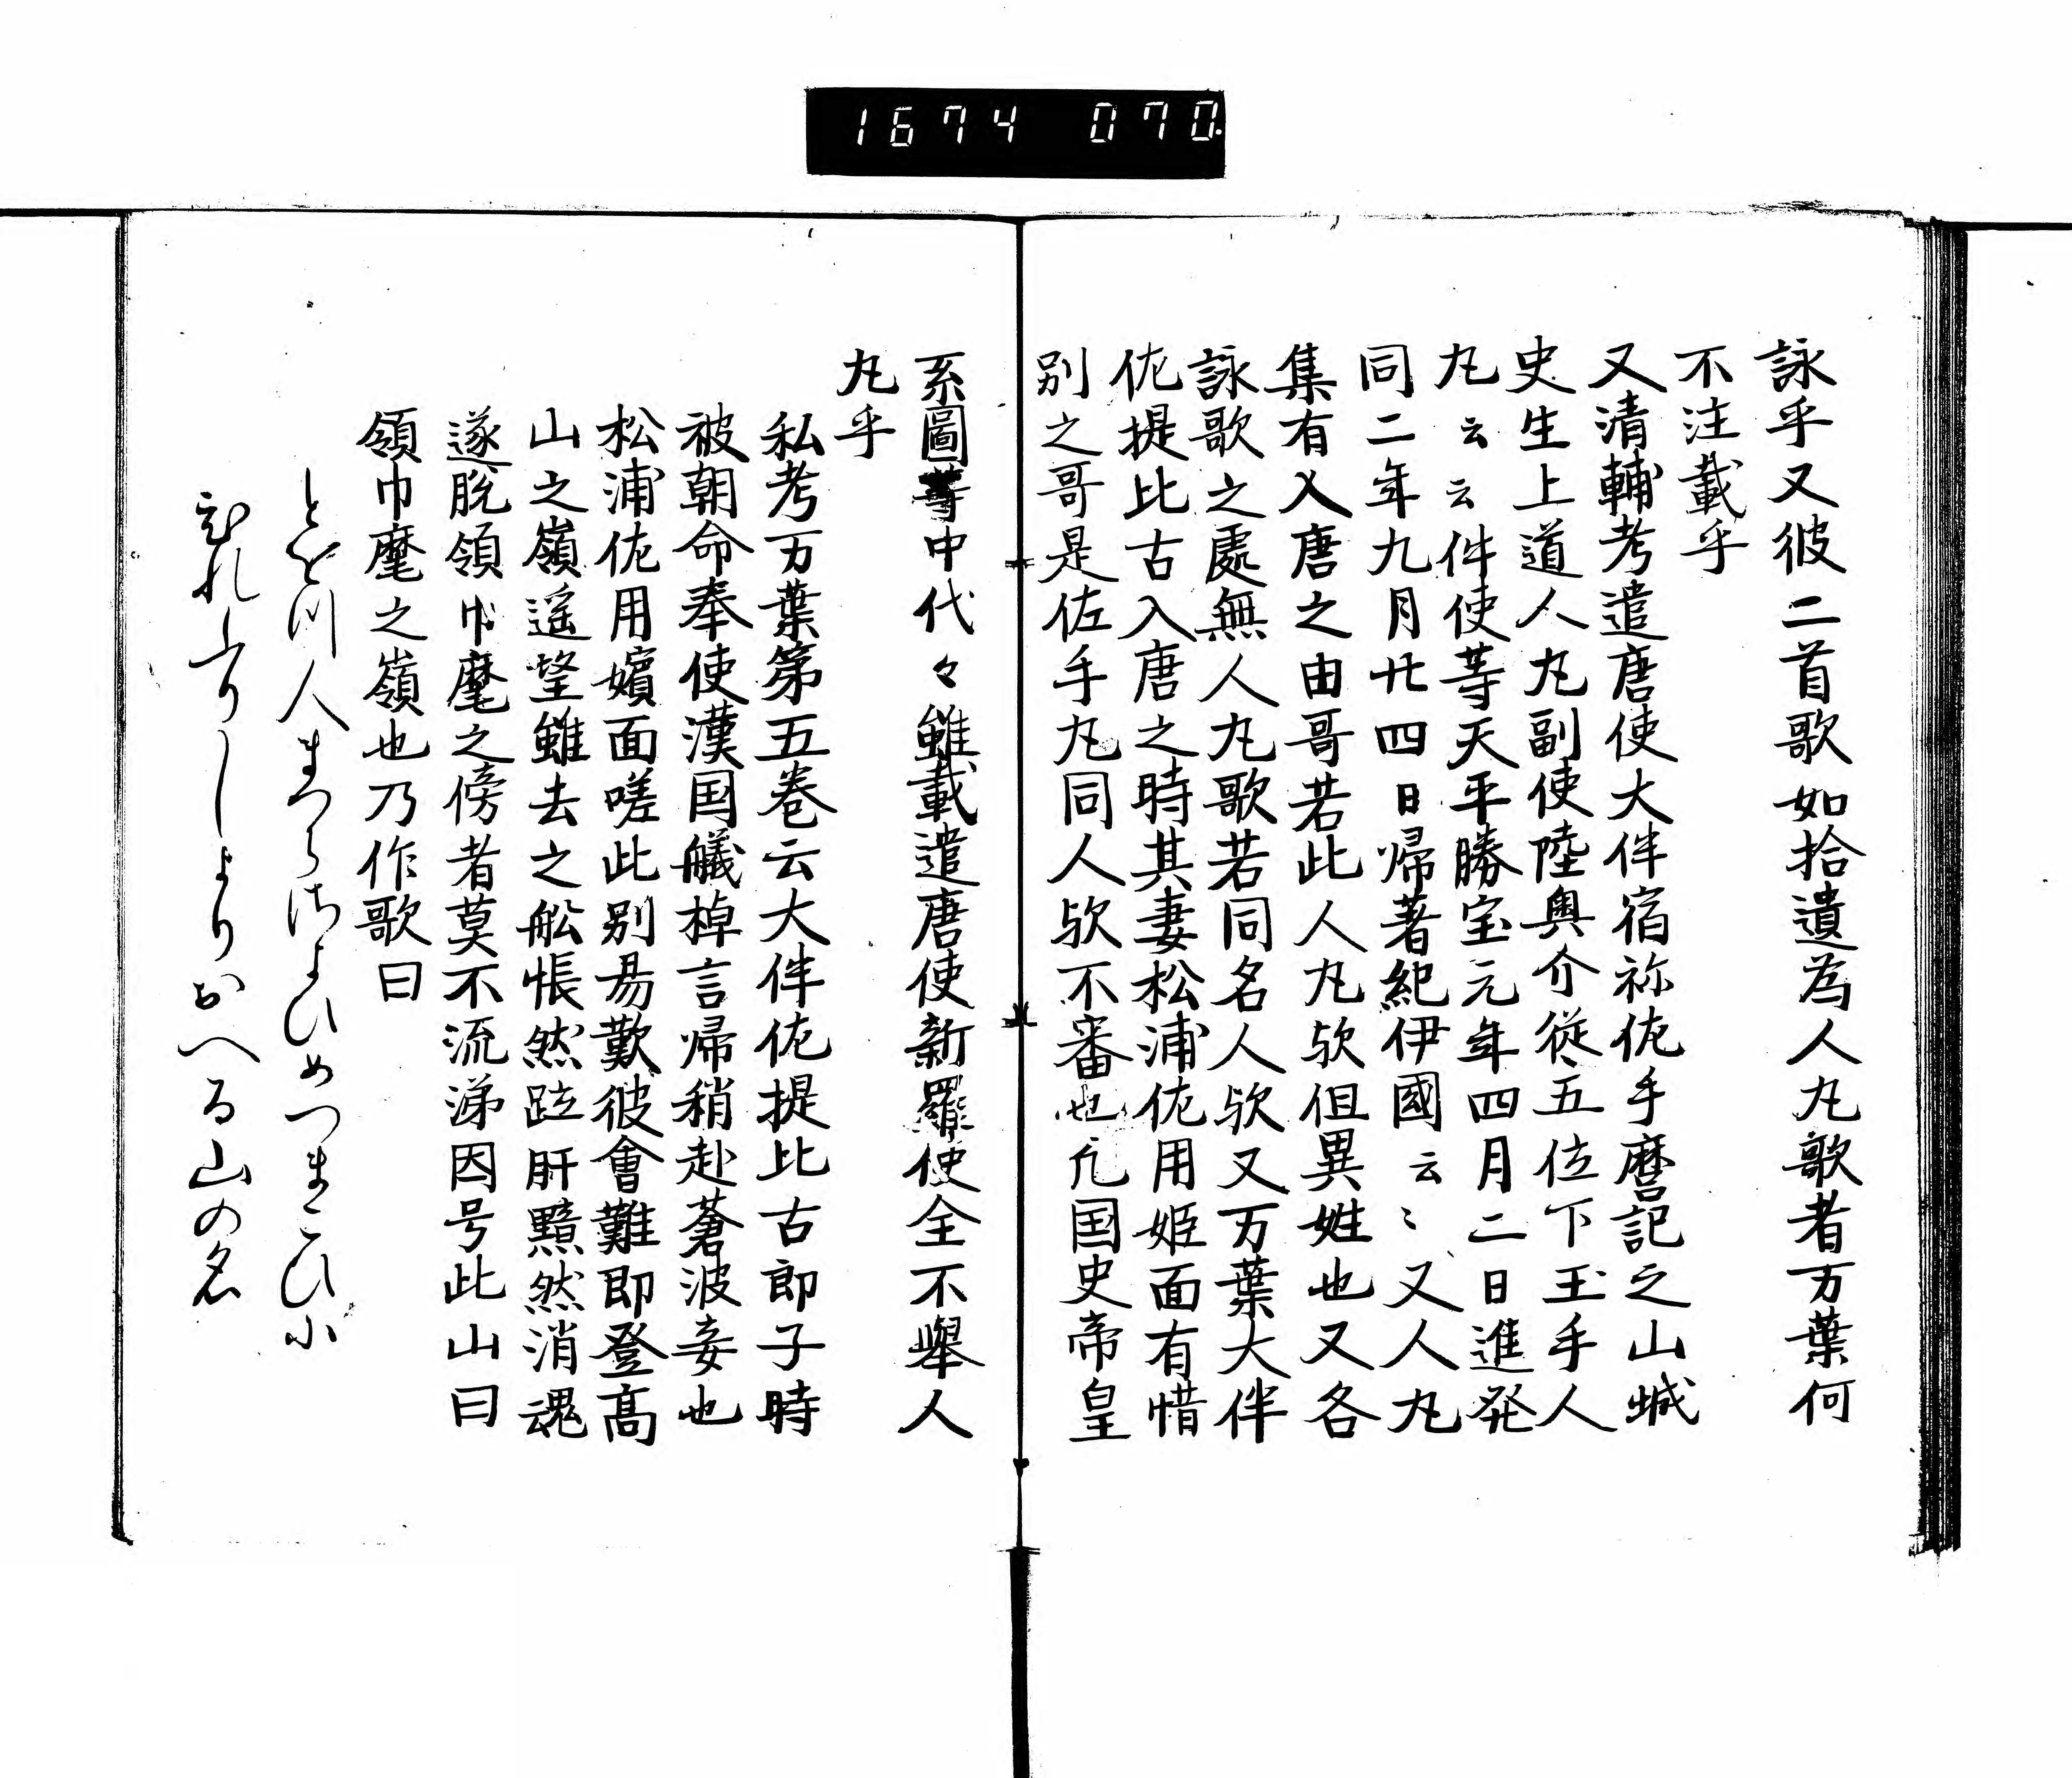 1674 070
詠乎又彼二首歌如拾遺為人丸歌者万葉何
不注載乎
又清輔考遣唐使大伴宿祢佐手麿記之山城
史生上道人丸副使陸奥介従五位下玉手人
丸云云件使等天平勝宝元年四月二日進発
同二年九月廿四日帰著紀伊國云〻又人丸
集有入唐之由哥若此人丸欤但異姓也又各
詠歌之處無人丸歌若同名人欤又万葉大伴
佐提比古入唐之時其妻松浦佐用姫面有惜
別之哥是佐手丸同人欤不審也凡国史帝皇
系圖等中代々雖載遣唐使新羅使全不舉人
丸乎
私考万葉第五巻云大伴佐提比古郎子時
被朝命奉使漢国艤棹言帰稍赴蒼波妾也
松浦佐用嬪面嗟此別易歎彼會難即登髙
山之嶺遥望雖去之舩悵然跓肝黯然消魂
遂脱領巾麾之傍者莫不流涕因号此山曰
領巾麾之嶺也乃作歌曰
とをつ人まつらさよひめつまこひに
ひれふりしよりおへる山の名